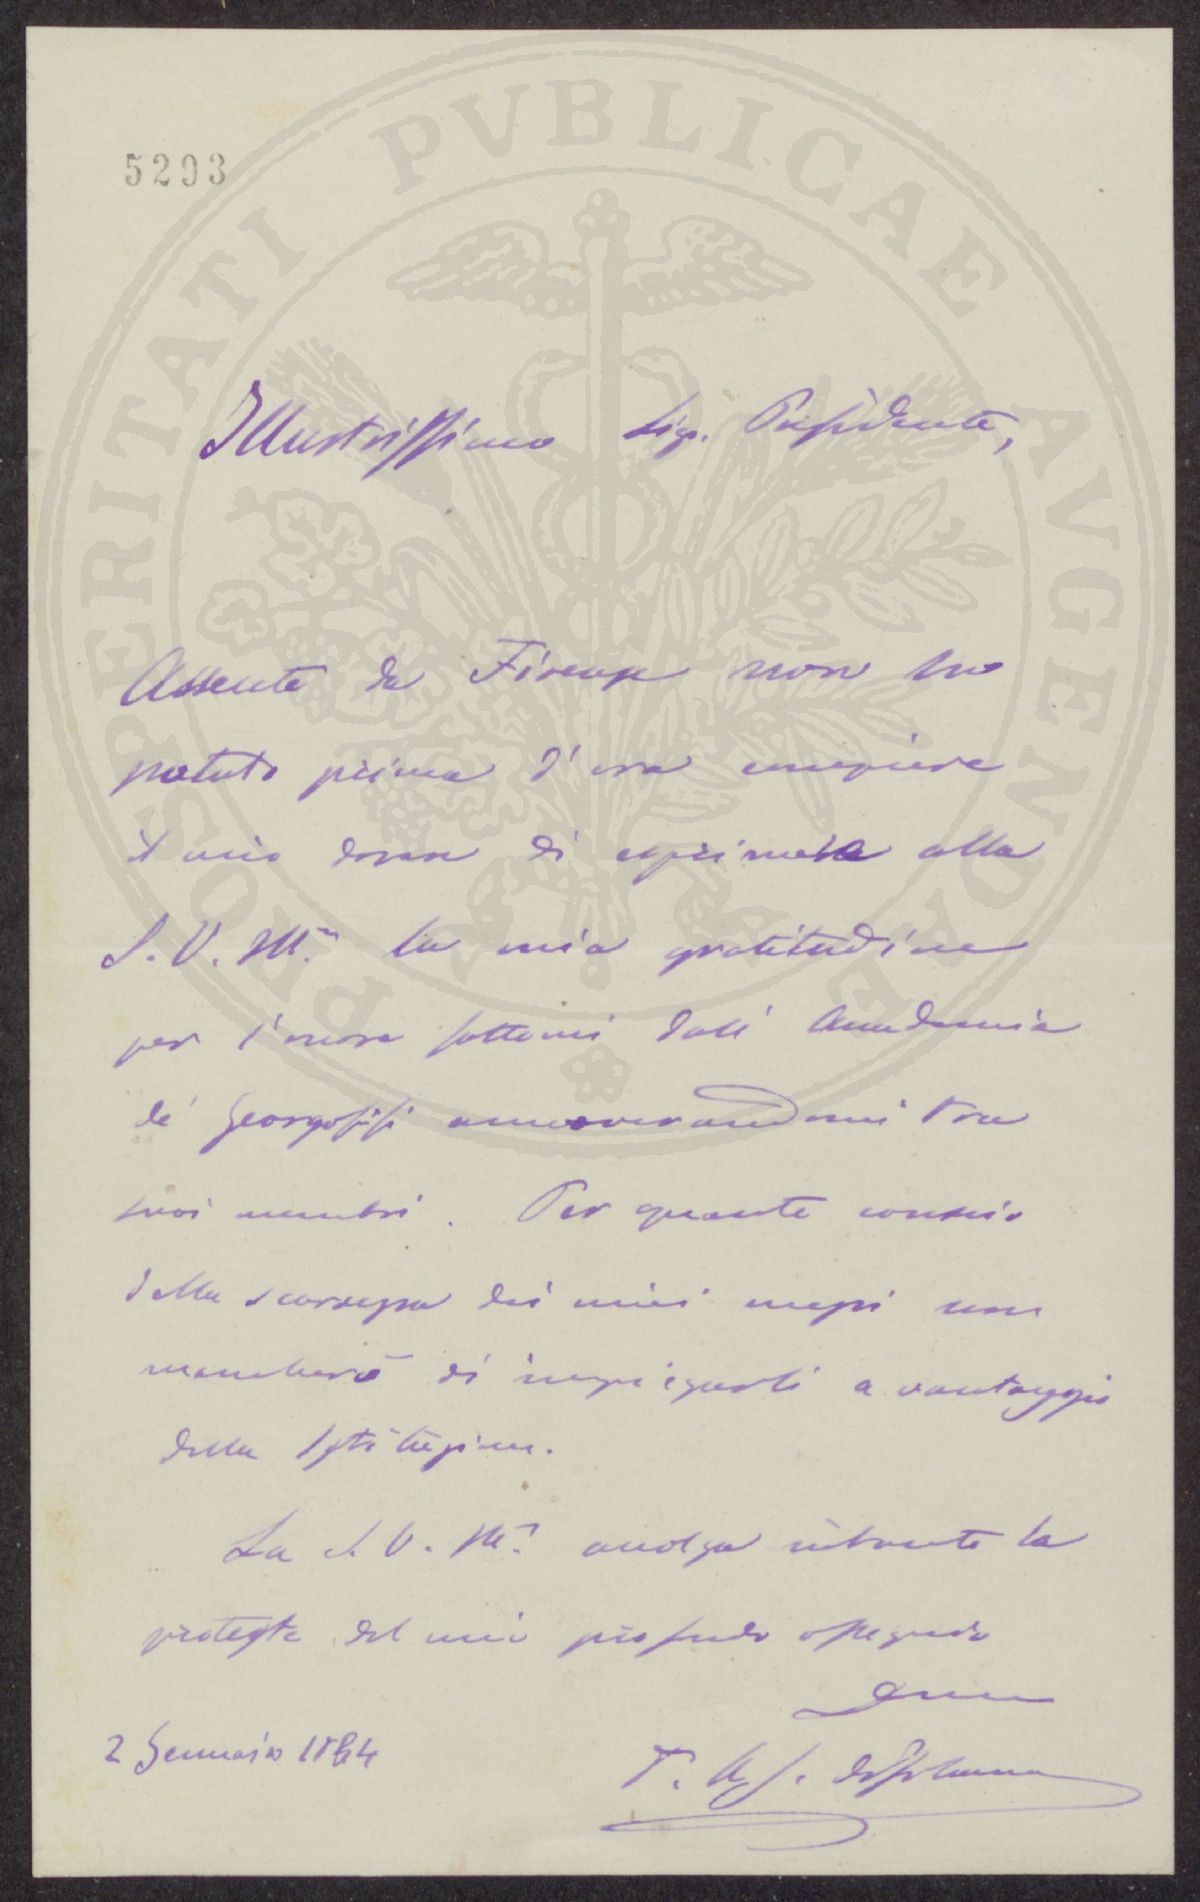 5293
PROSPERITATI PVBLICAE AVGENDAE
Illustrissimo Sig. Presidente,
Assente da Firenze non ho
potuto prima d'ora compiere
il mio dovere di esprimere alla
S. V. Ill.ma la mia gratitudine
per l'onore fattomi dall'Accademia
de' Georgofili annoverandomi tra
suoi membri. Per quanto conscio
della scarsezza dei miei mezzi non
mancherò di impiegarli a vantaggio
della Istituzione.
La S. V. Ill.ma accolga intanto la
proteste del mio profondo ossequio
2 Gennaio 1884